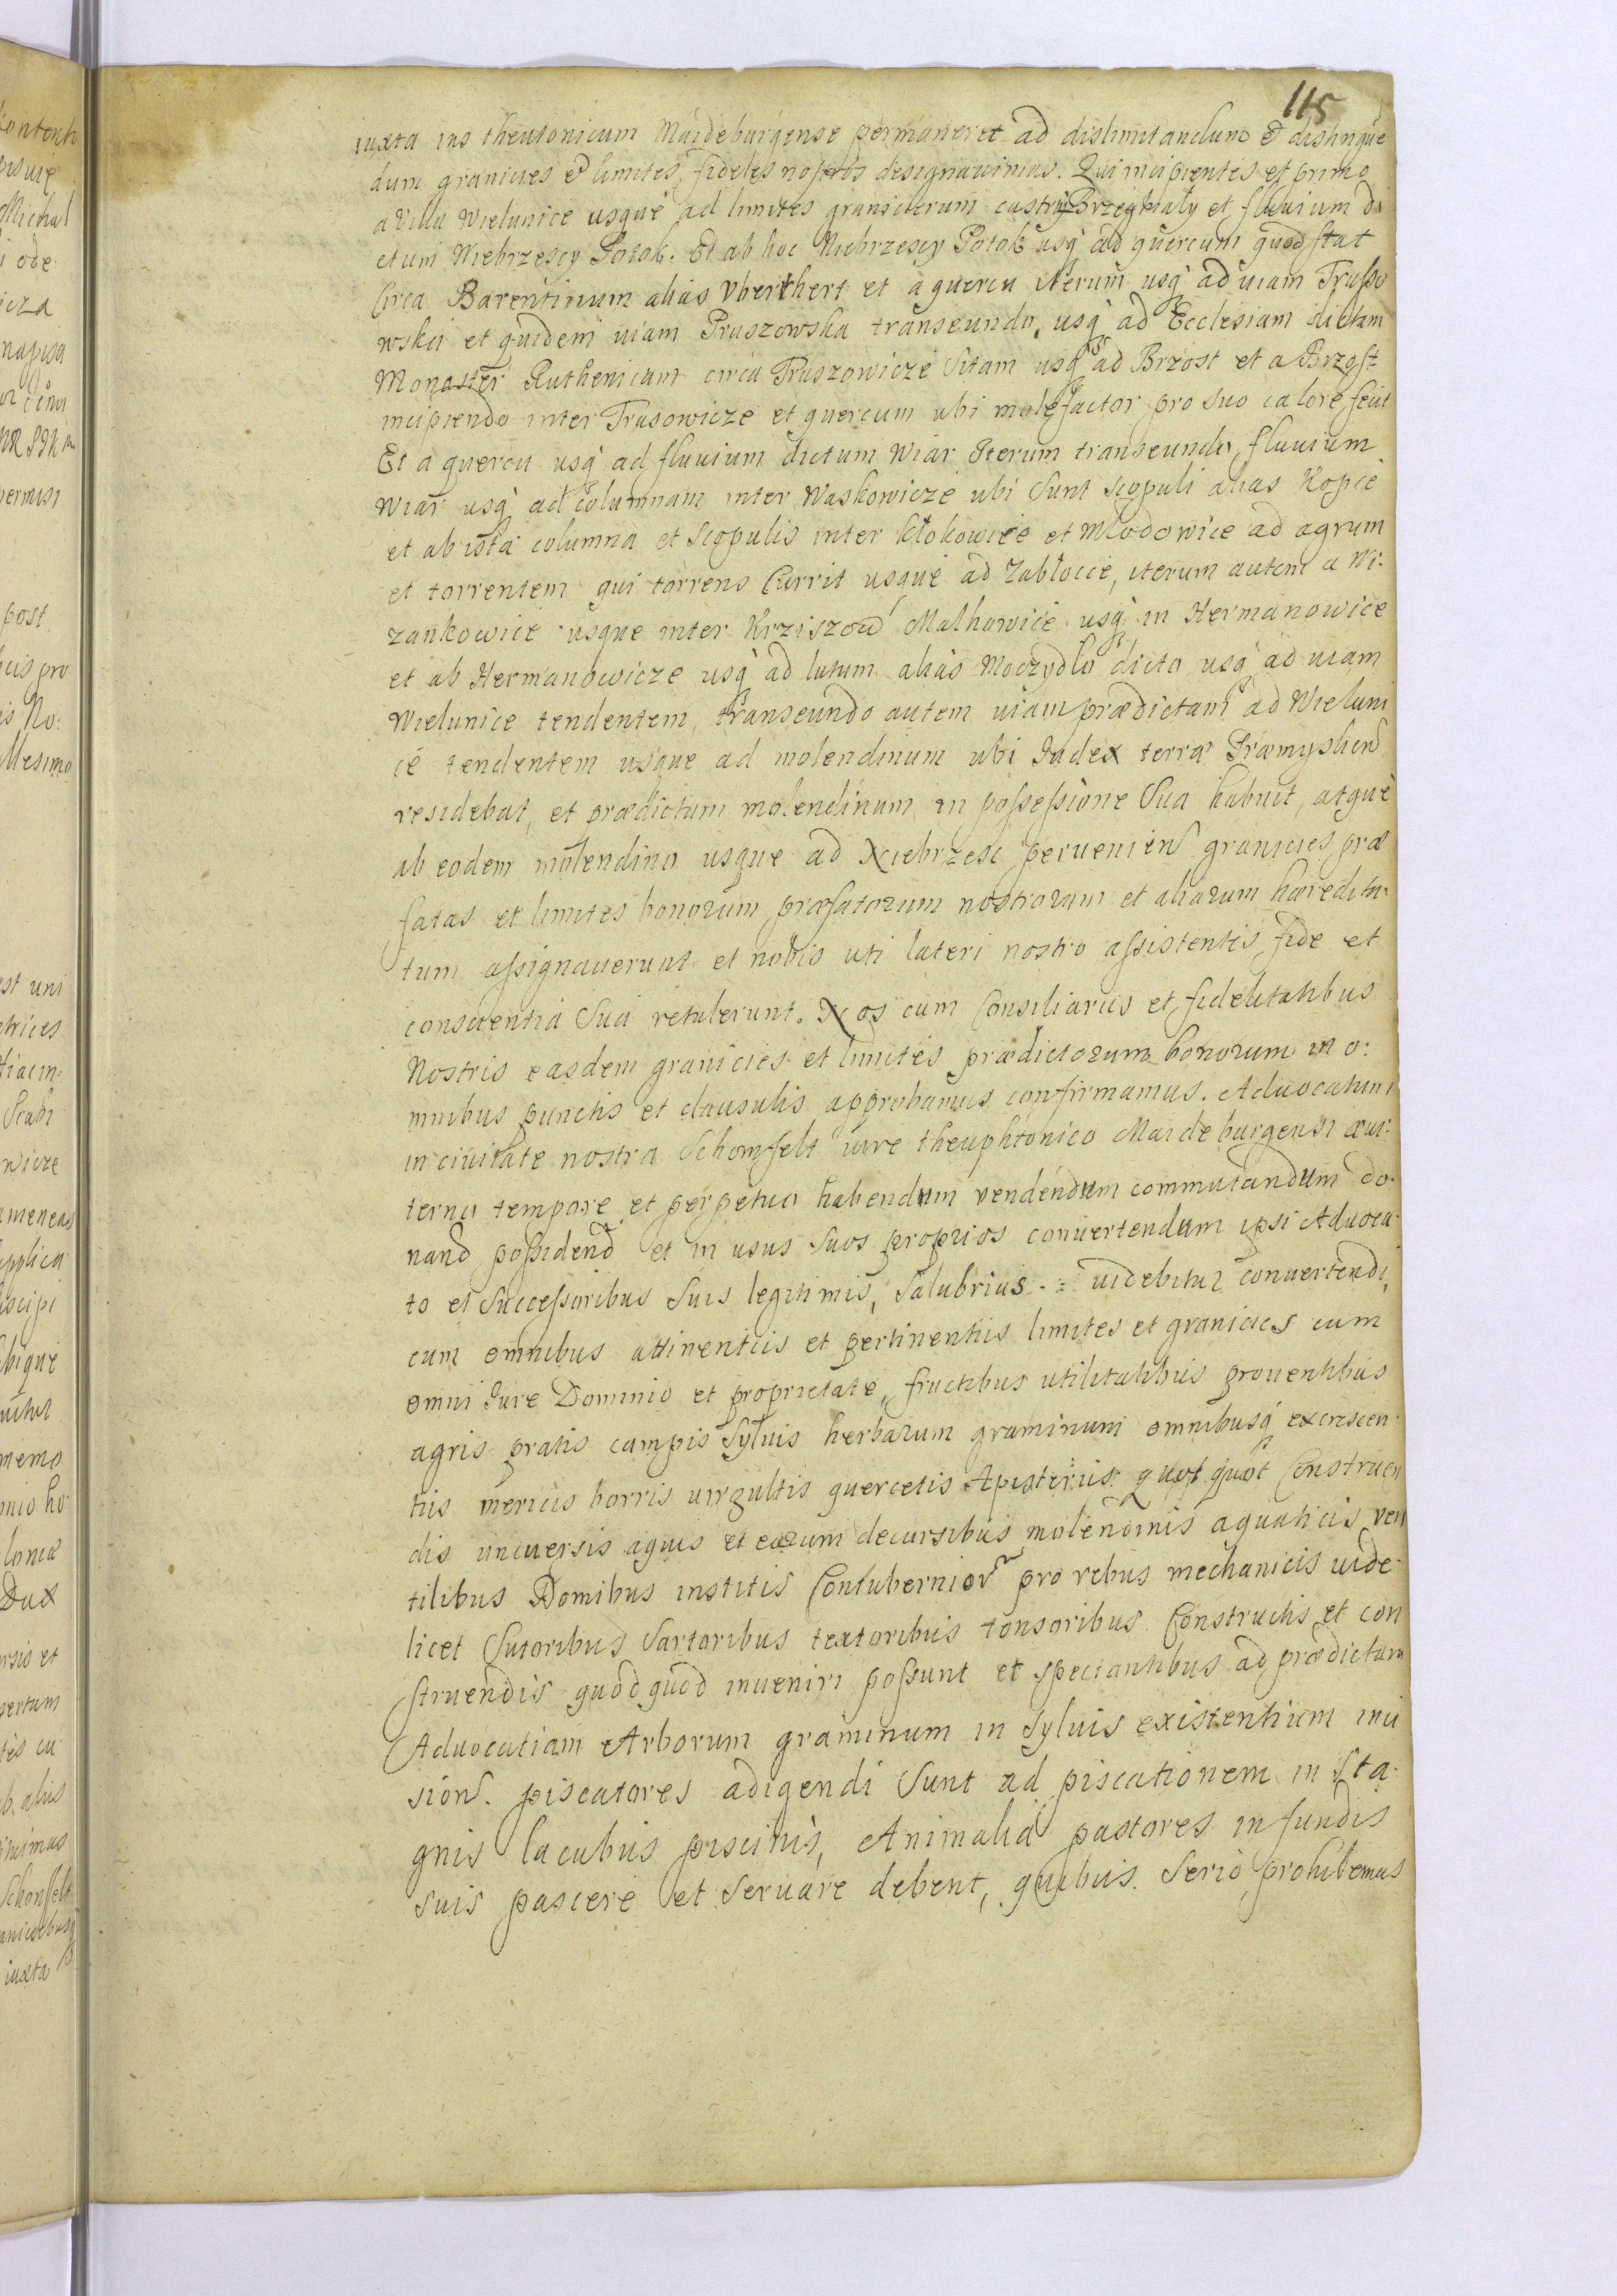 115
iuxta ius theutonicum Maideburgense permaneret ad dislimitandum et distingue
dum granicies et limites, fideles nostros designauimus. Qui incipientes et primo
a villa Wielunice usque ad limites granicierum castri Brzeghialy et fluuium di
ctum Niebrzescy Potok. Et ab hoc Niebrzescy Potok usq ad quercum quod stat
Circa Barentinum alias Vberthert et a quercu iterum usq ad uiam Trusso
wskei et quidem uiam Pruszowska transeundo, usq ad Ecclesiam dictam
Monaster Ruthenicam circa Truszowicze Sitam usq ad Brzost et a Brzost
incipiendo inter Trusowicze et quercum ubi malefactor pro suo calore fecit
Et a quercu usq ad fluuium dictum Wiar Iterum transeundo fluuium
Wiar usq ad columnam inter Waskowicze ubi Sunt scopuli alias Kopce
et ab ista columna et Scopulis inter Kłokowice et Młodowice ad agrum
et torrentem qui torrens Currit usque ad Zabłocie, iterum autem a Ni:
zankowice usque inter Krziszow Malhowice usq in Hermanowice
et ab Hermanowicze usq ad lutum alias Moczydło dicto usq ad uiam
Wielunice tendentem, transeundo autem uiam prædictam ad Wieluni
ce tendentem usque ad molendinum ubi Iudex terræ Præmyslien
residebat, et prædictum molendinum in possessione Sua habuit, atque
ab eodem molendino usque ad Niebrzesc peruenien granicies præ
fatas et limites bonorum præfatorum nostrorum et aliarum hæredita:
tum assignauerunt et nobis uti lateri nostro assistentis, fide et
conscientia Sua retulerunt. Nos cum Consiliariis et fidelitatibus
Nostris easdem granicies et limites prædictorum bonorum in o:
mnibus punctis et clausulis approbamus confirmamus. Aduocatum
in ciuitate nostra Schomfelt iure theuphtonico Maideburgensi æui:
terno tempore et perpetuo habendum vendendum commutandum do:
nand possidend et in usus Suos proprios conuertendum ipsi Aduoca:
to et Successoribus Suis legitimis, Salubrius -: uidebitur conuertendi,
cum omnibus attinentiis et pertinentiis limites et granicies cum
omni Iure Dominio et proprietate, fructibus utilitatibus prouentibus
agris pratis campis Syluis herbarum graminum omnibusq excrescen:
tiis mericis borris uirgultis quercetis Apisteriis quot quot Construen
dis uniuersis aquis et earum decursibus molendinis aquaticis ven
tilibus Domibus institis Contubernior pro rebus mechanicis uide:
licet Sutoribus Sartoribus textoribus tonsoribus Constructis et con
struendis quodquod inueniri possunt et spectantibus ad prædictam
Aduocatiam Arborum graminum in Syluis existentium inci
sion. piscatores adigendi Sunt ad piscationem in Sta:
gnis lacubus piscinis, Animalia pastores in fundis
suis pascere et Seruare debent, quibus. Serio prohibemus